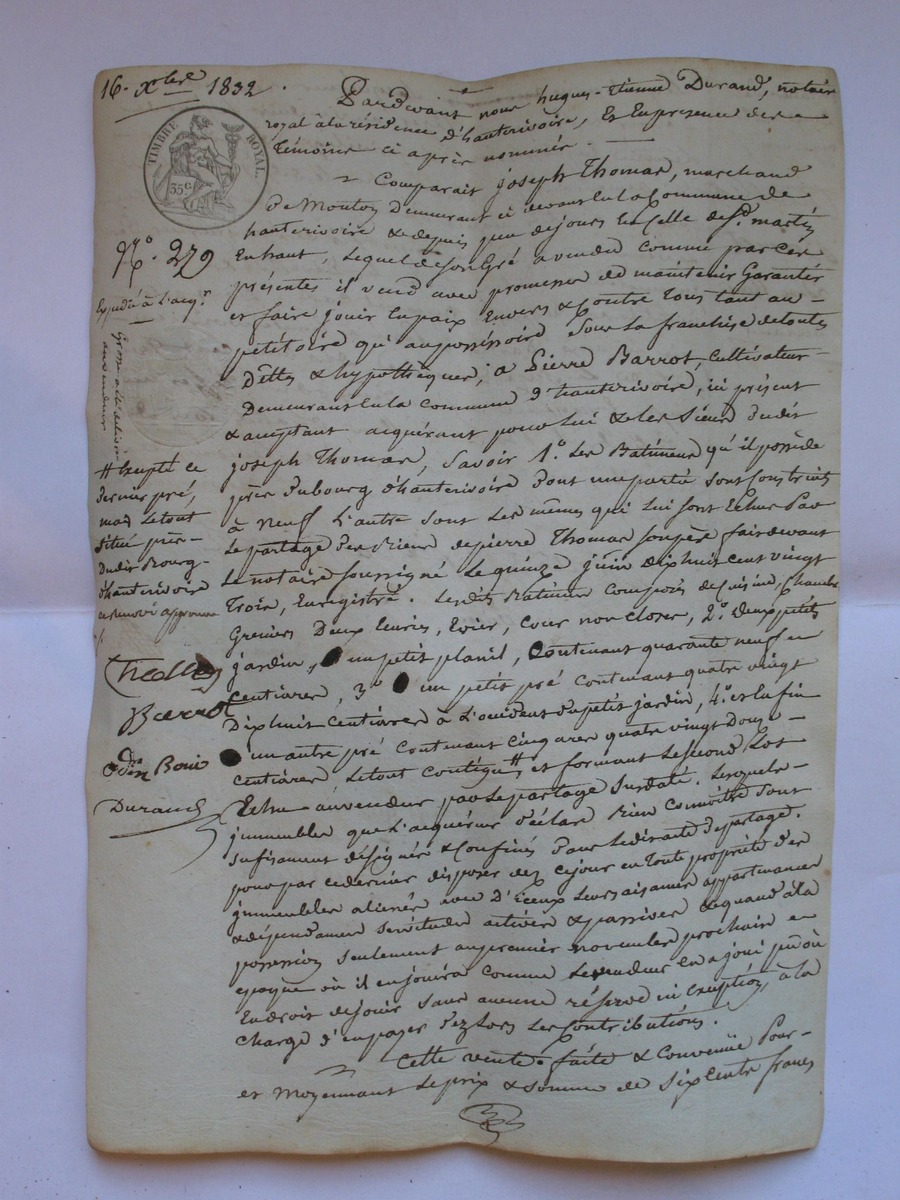 16. Xbre 1832.
Pardevant nous hugues-Etienne Durand, notaire
royal à la résidence d'hauterivoire, Et En presence des
témoins ci après nommés.
TIMBRE ROYAL.
35c
Comparait joseph Thomas, marchand
de Moutons Demeurant ci devant En la Commune de
hauterivoire & depuis peu de jours En Celle de St. martin
En haut, Lequel de Son Gré a vendu comme par Ces
présentes il vend avec promesse de maintenir Garantir
et faire jouir En paix Envers & Contre tous tant au
petitoire qu'au possessoire Sous La franchise de toutes
Dettes & hypothèques, a Pierre Barrot, Cultivateur
Demeurant En la Commune d'hauterivoire, ici présent
& acceptant acquérant pour Lui & Les Siens dudit
joseph Thomas, Savoir 1o. Les Batimens qu'il possède
près du bourg d'hauterivoire Dont une partie sont Construits
à neuf L'autre sont Les mêmes qui Lui sont Echus Par
Le partage Des Biens de pierre Thomas son père fait devant
Le notaire soussigné Le quinze juin Dix huit cent vingt
Trois, Enregistré. Lesdits Batimens Composés de Cuisine, Chambre
Greniers Deux Ecuries, Evier, Cour non Close, 2o. Deux petits
jardins, un petit planil, Contenant quarante neuf
Centiares, 3o un petit pré Contenant quatre vingt
Dix huit Centiares à L'occident du petit jardin, 4o. et En fin
un autre pré Contenant Cinq ares quatre vingt Douze
Centiares Le tout Contigu #, et formant Le second Lot
Echu au vendeur par Le partage Susdaté. Lesquels
jmmeubles que L'acquéreur déclare Bien Connoitre Sont
sufisament désignés & Confinés Dans Ledit acte de partage.
pour par ce dernier disposer dez ce jour en toute propriété des
jmmeubles aliénés avec D'Eceux Leurs aisances appartenances
& dépendances servitudes actives & passives & quand à la
possession seulement au premier novembre prochain
epoque où il en jouira comme Le vendeur En a joui pû où
En droit de jouir Sans aucune réserve ni Exception, à la
charge d'en payer dez Lors Les Contributions.
Cette vente faite & Convenüe Pour
et Moyennant Le prix & somme de Six Cents francs
No. 279
Expédié à L'acqr.
# Excepté ce
dernier pré,
mais Le tout
situé près
Dudit Bourg
d'hauterivoire
ce renvoi approuvé
Barrot
Durand